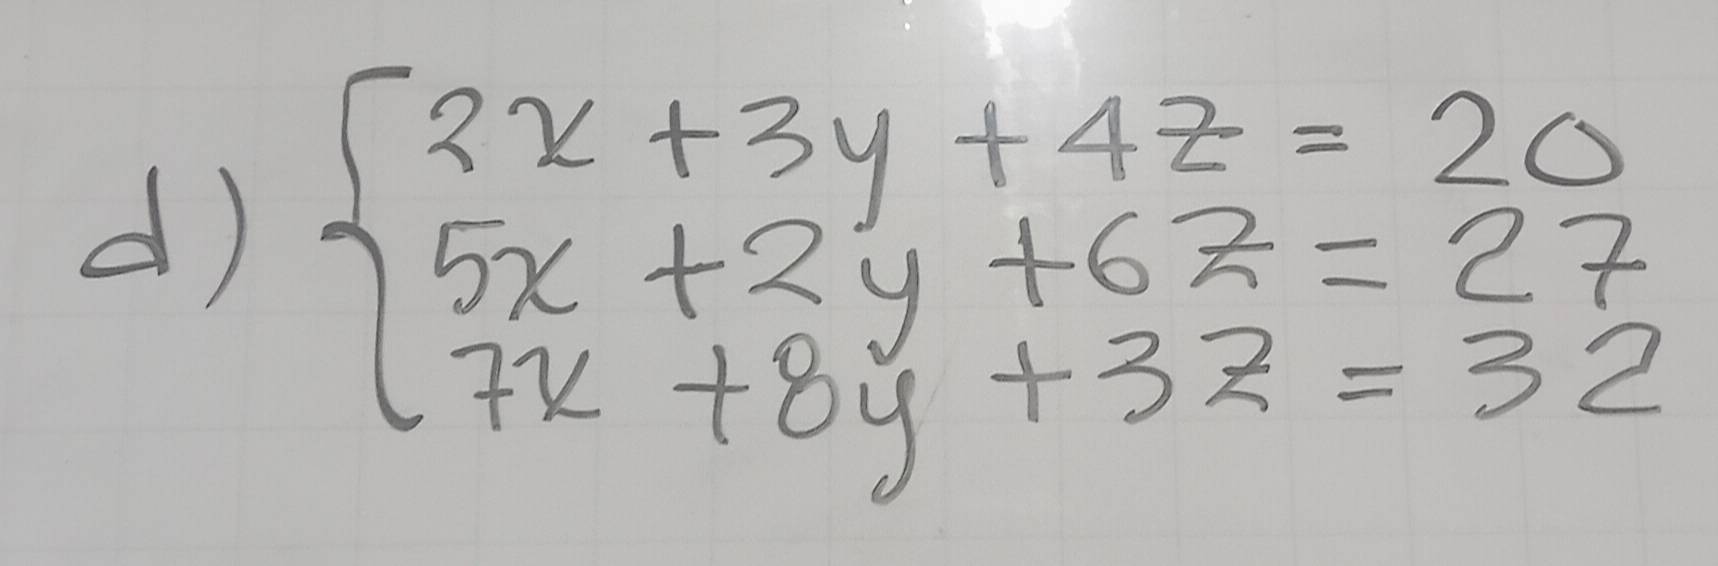 d) { 2x + 3y + 4z = 20
5x + 2y + 6z = 27
7x + 8y + 3z = 32